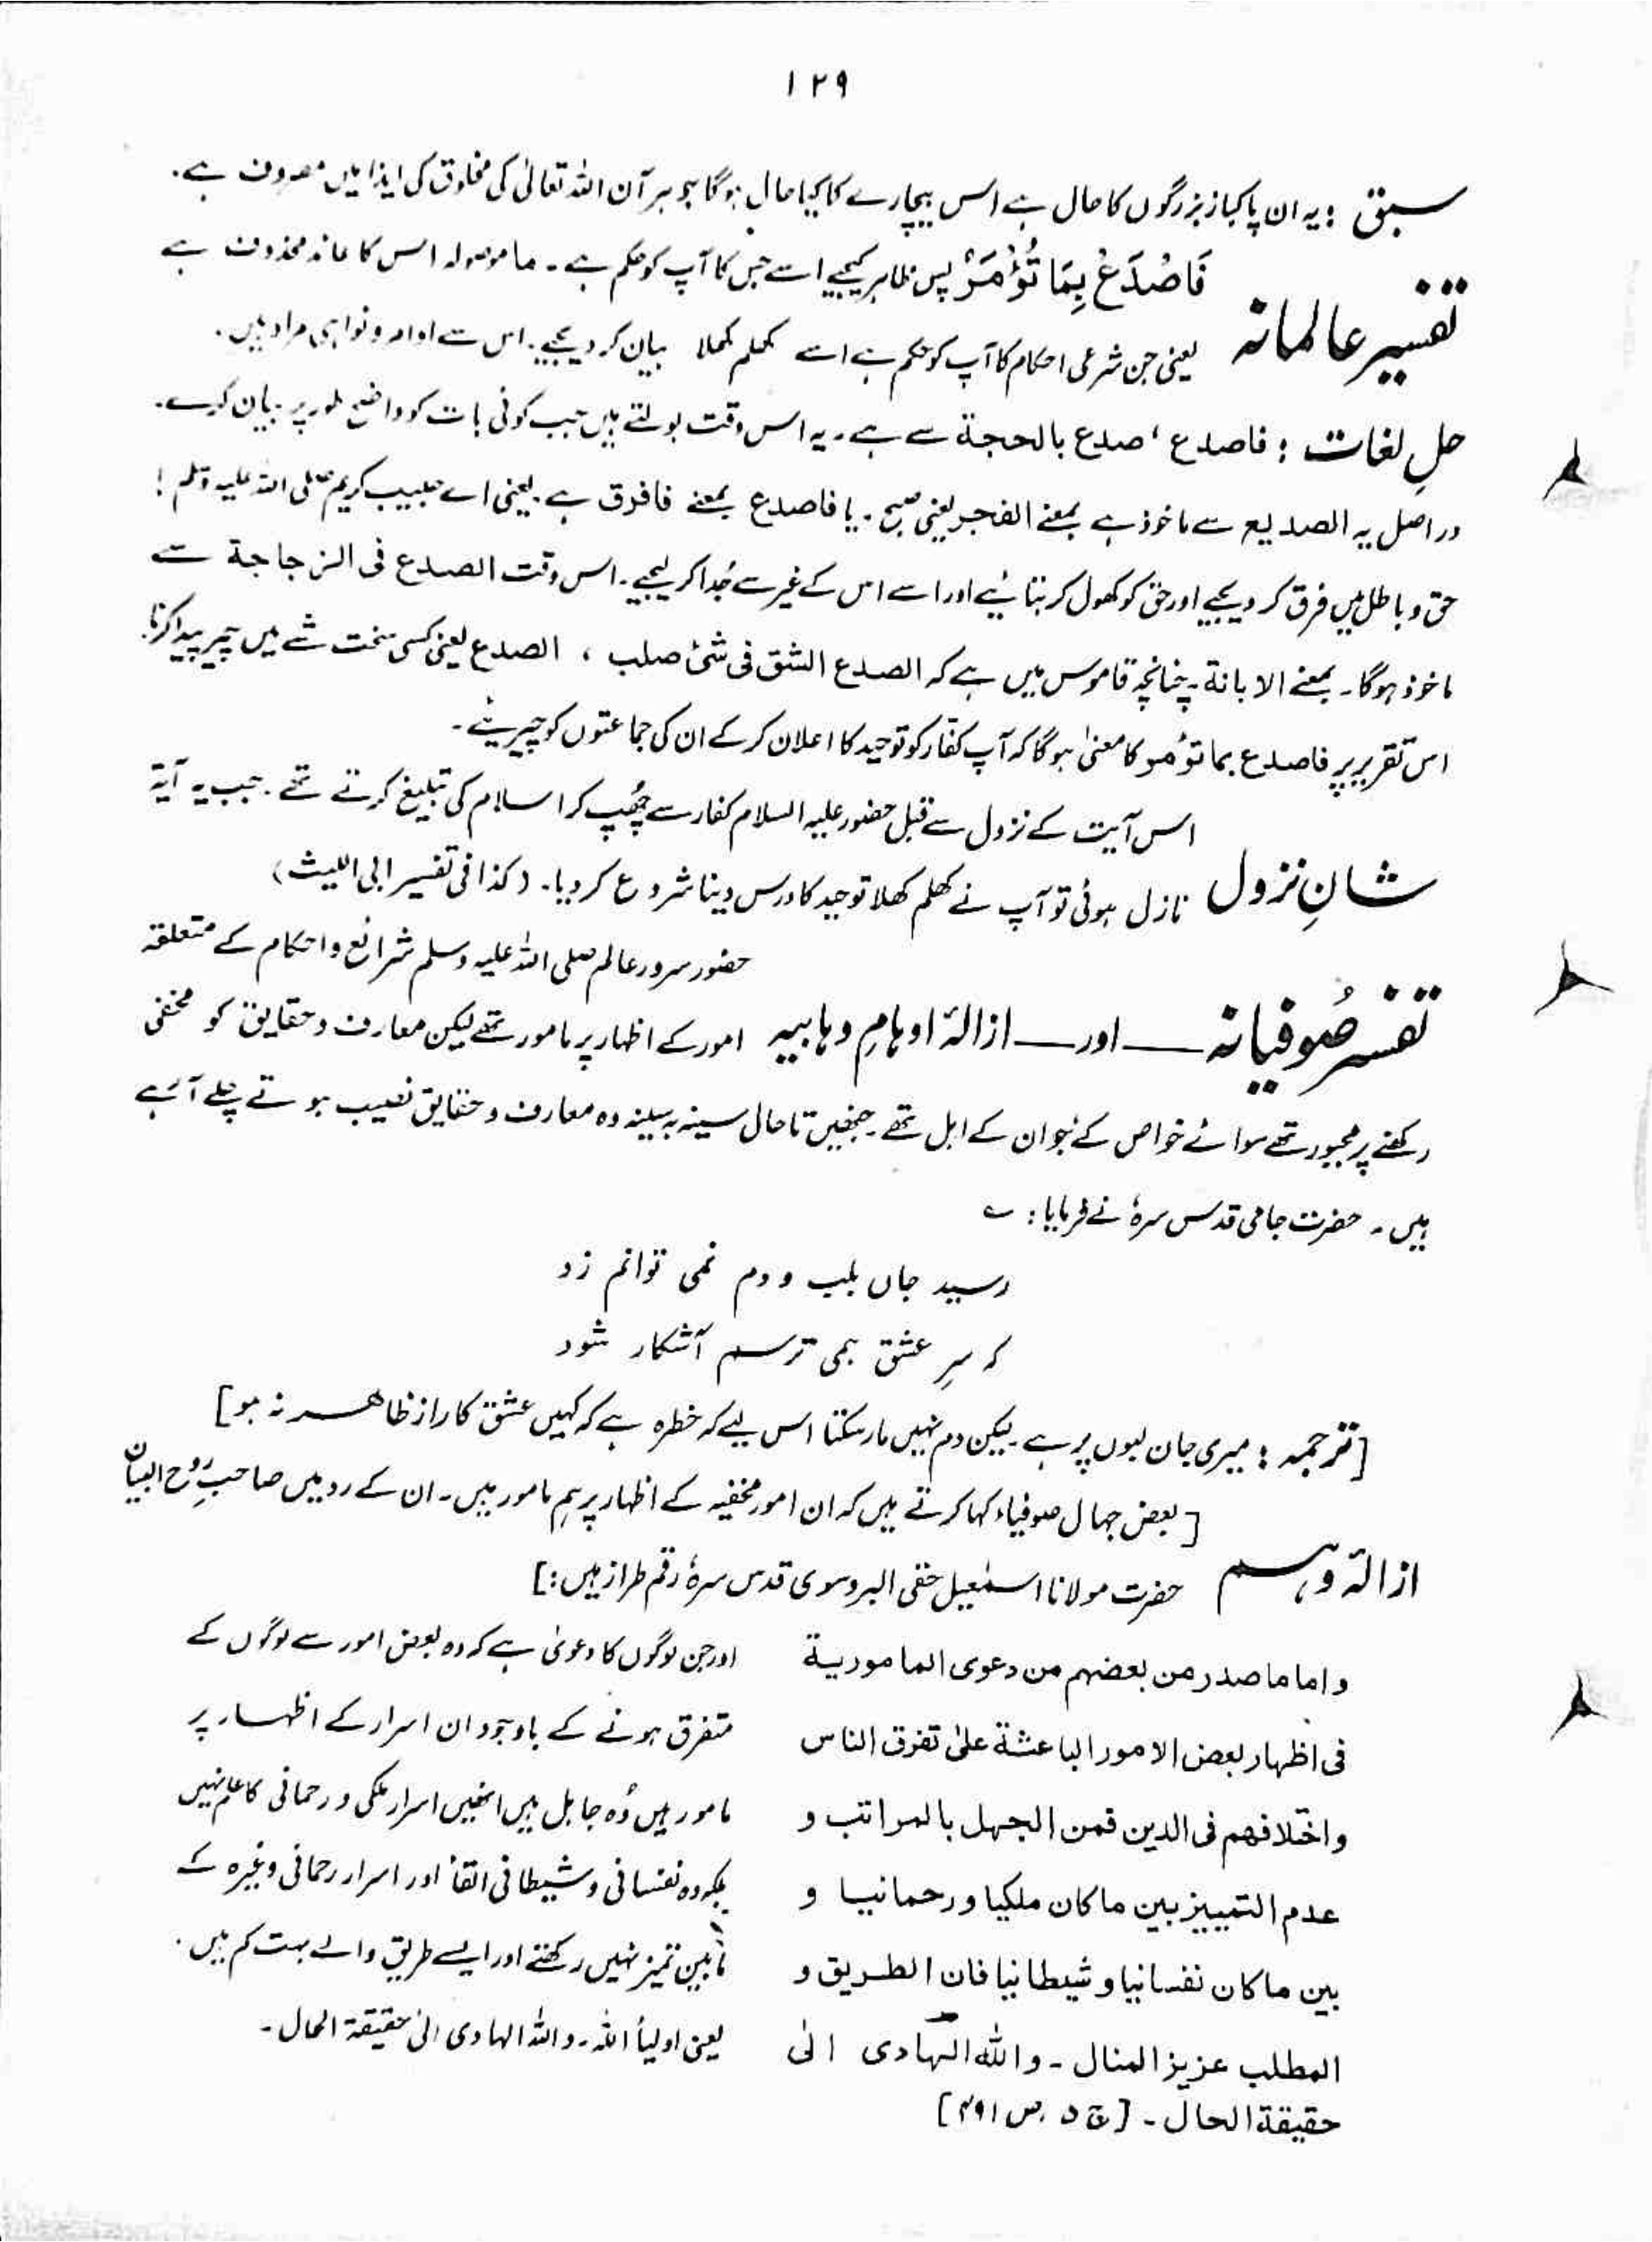 ۱۲۹
سبق : یہ ان پاکباز بزرگوں کا حال ہے اس بیچارے کا کیا حال ہوگا جو ہر آن اللہ تعالیٰ کی مخلوق کی ایذا میں مصروف ہے۔
تفسیر عالمانہ
فَاصْدَعْ بِمَا تُؤْمَرُ پس ظاہر کیجیے اسے جس کا آپ کو حکم ہے۔ ما موصولہ اس کا عائد محذوف ہے
یعنی جن شرعی احکام کا آپ کو حکم ہے اسے کھلم کھلا بیان کر دیجیے۔ اس سے اوامر و نواہی مراد ہیں۔
حلِ لغات : فاصدع ، صدع بالحجة سے ہے۔ یہ اس وقت بولتے ہیں جب کوئی بات کو واضح طور پر بیان کرے۔
دراصل یہ الصدیع سے ماخوذ ہے بمعنے الفجر یعنی صبح۔ یا فاصدع بمعنے فافرق ہے۔ یعنی اے حبیب کریم صلی اللہ علیہ وسلم !
حق و باطل میں فرق کر دیجیے اور حق کو کھول کر بتائیے اور اسے اس کے غیر سے جُدا کر لیجیے۔ اس وقت الصدع فی الزجاجة سے
ماخوذ ہوگا۔ بمعنے الابانة۔ چنانچہ قاموس میں ہے کہ الصدع الشق فی شئ صلب ، الصدع یعنی کسی سخت شے میں چیر پیدا کرنا۔
اس تقریر پر فاصدع بما تؤمر کا معنیٰ ہوگا کہ آپ کفار کو توحید کا اعلان کر کے ان کی جماعتوں کو چیریئے۔
شانِ نزول
اس آیت کے نزول سے قبل حضور علیہ السلام کفار سے چُھپ کر اسلام کی تبلیغ کرتے تھے۔ جب یہ آیۃ
نازل ہوئی تو آپ نے کھلم کھلا توحید کا درس دینا شروع کر دیا۔ (کذا فی تفسیر ابی اللیث)
تفسیر صُوفیانہ — اور — ازالۂ اوہامِ وہابیہ
حضور سرور عالم صلی اللہ علیہ وسلم شرائع و احکام کے متعلقہ
امور کے اظہار پر مامور تھے لیکن معارف و حقایق کو مخفی
رکھنے پر مجبور تھے سوائے خواص کے جو ان کے اہل تھے۔ جنھیں تاحال سینہ بہ سینہ وہ معارف و حقایق نصیب ہوتے چلے آ رہے
ہیں۔ حضرت جامی قدس سرہٗ نے فرمایا : ؎
رسید جاں بلب و دم نمی توانم زد
کہ سرِ عشق ہمی ترسم آشکار شود
[ترجمہ : میری جان لبوں پر ہے۔ لیکن دم نہیں مار سکتا اس لیے کہ خطرہ ہے کہ کہیں عشق کا راز ظاہر نہ ہو]
ازالۂ وہم
[بعض جہال صوفیاء کہا کرتے ہیں کہ ان امور مخفیہ کے اظہار پر ہم مامور ہیں۔ ان کے رد میں صاحبِ روح البیان
حضرت مولانا اسمٰعیل حقی البروسوی قدس سرہٗ رقم طراز ہیں:]
واما ما صدر من بعضهم من دعوى المامورية
فی اظهار بعض الامور الباعثة علیٰ تفرق الناس
واختلافهم فی الدین فمن الجهل بالمراتب و
عدم التمییز بین ما کان ملکیا و رحمانیا و
بین ما کان نفسانیا و شیطانیا فان الطریق و
المطلب عزیز المنال۔ واللہ الهادی الیٰ
حقیقة الحال۔ [ج ۵ ، ص ۴۹۱]
اور جن لوگوں کا دعویٰ ہے کہ وہ بعض امور سے لوگوں کے
متفرق ہونے کے باوجود ان اسرار کے اظہار پر
مامور ہیں وُہ جاہل ہیں انھیں اسرار ملکی و رحمانی کا علم نہیں
بلکہ وہ نفسانی و شیطانی القأ اور اسرار رحمانی وغیرہ کے
مابین تمیز نہیں رکھتے اور ایسے طریق والے بہت کم ہیں۔
یعنی اولیأ اللہ۔ واللہ الہادی الیٰ حقیقۃ الحال۔